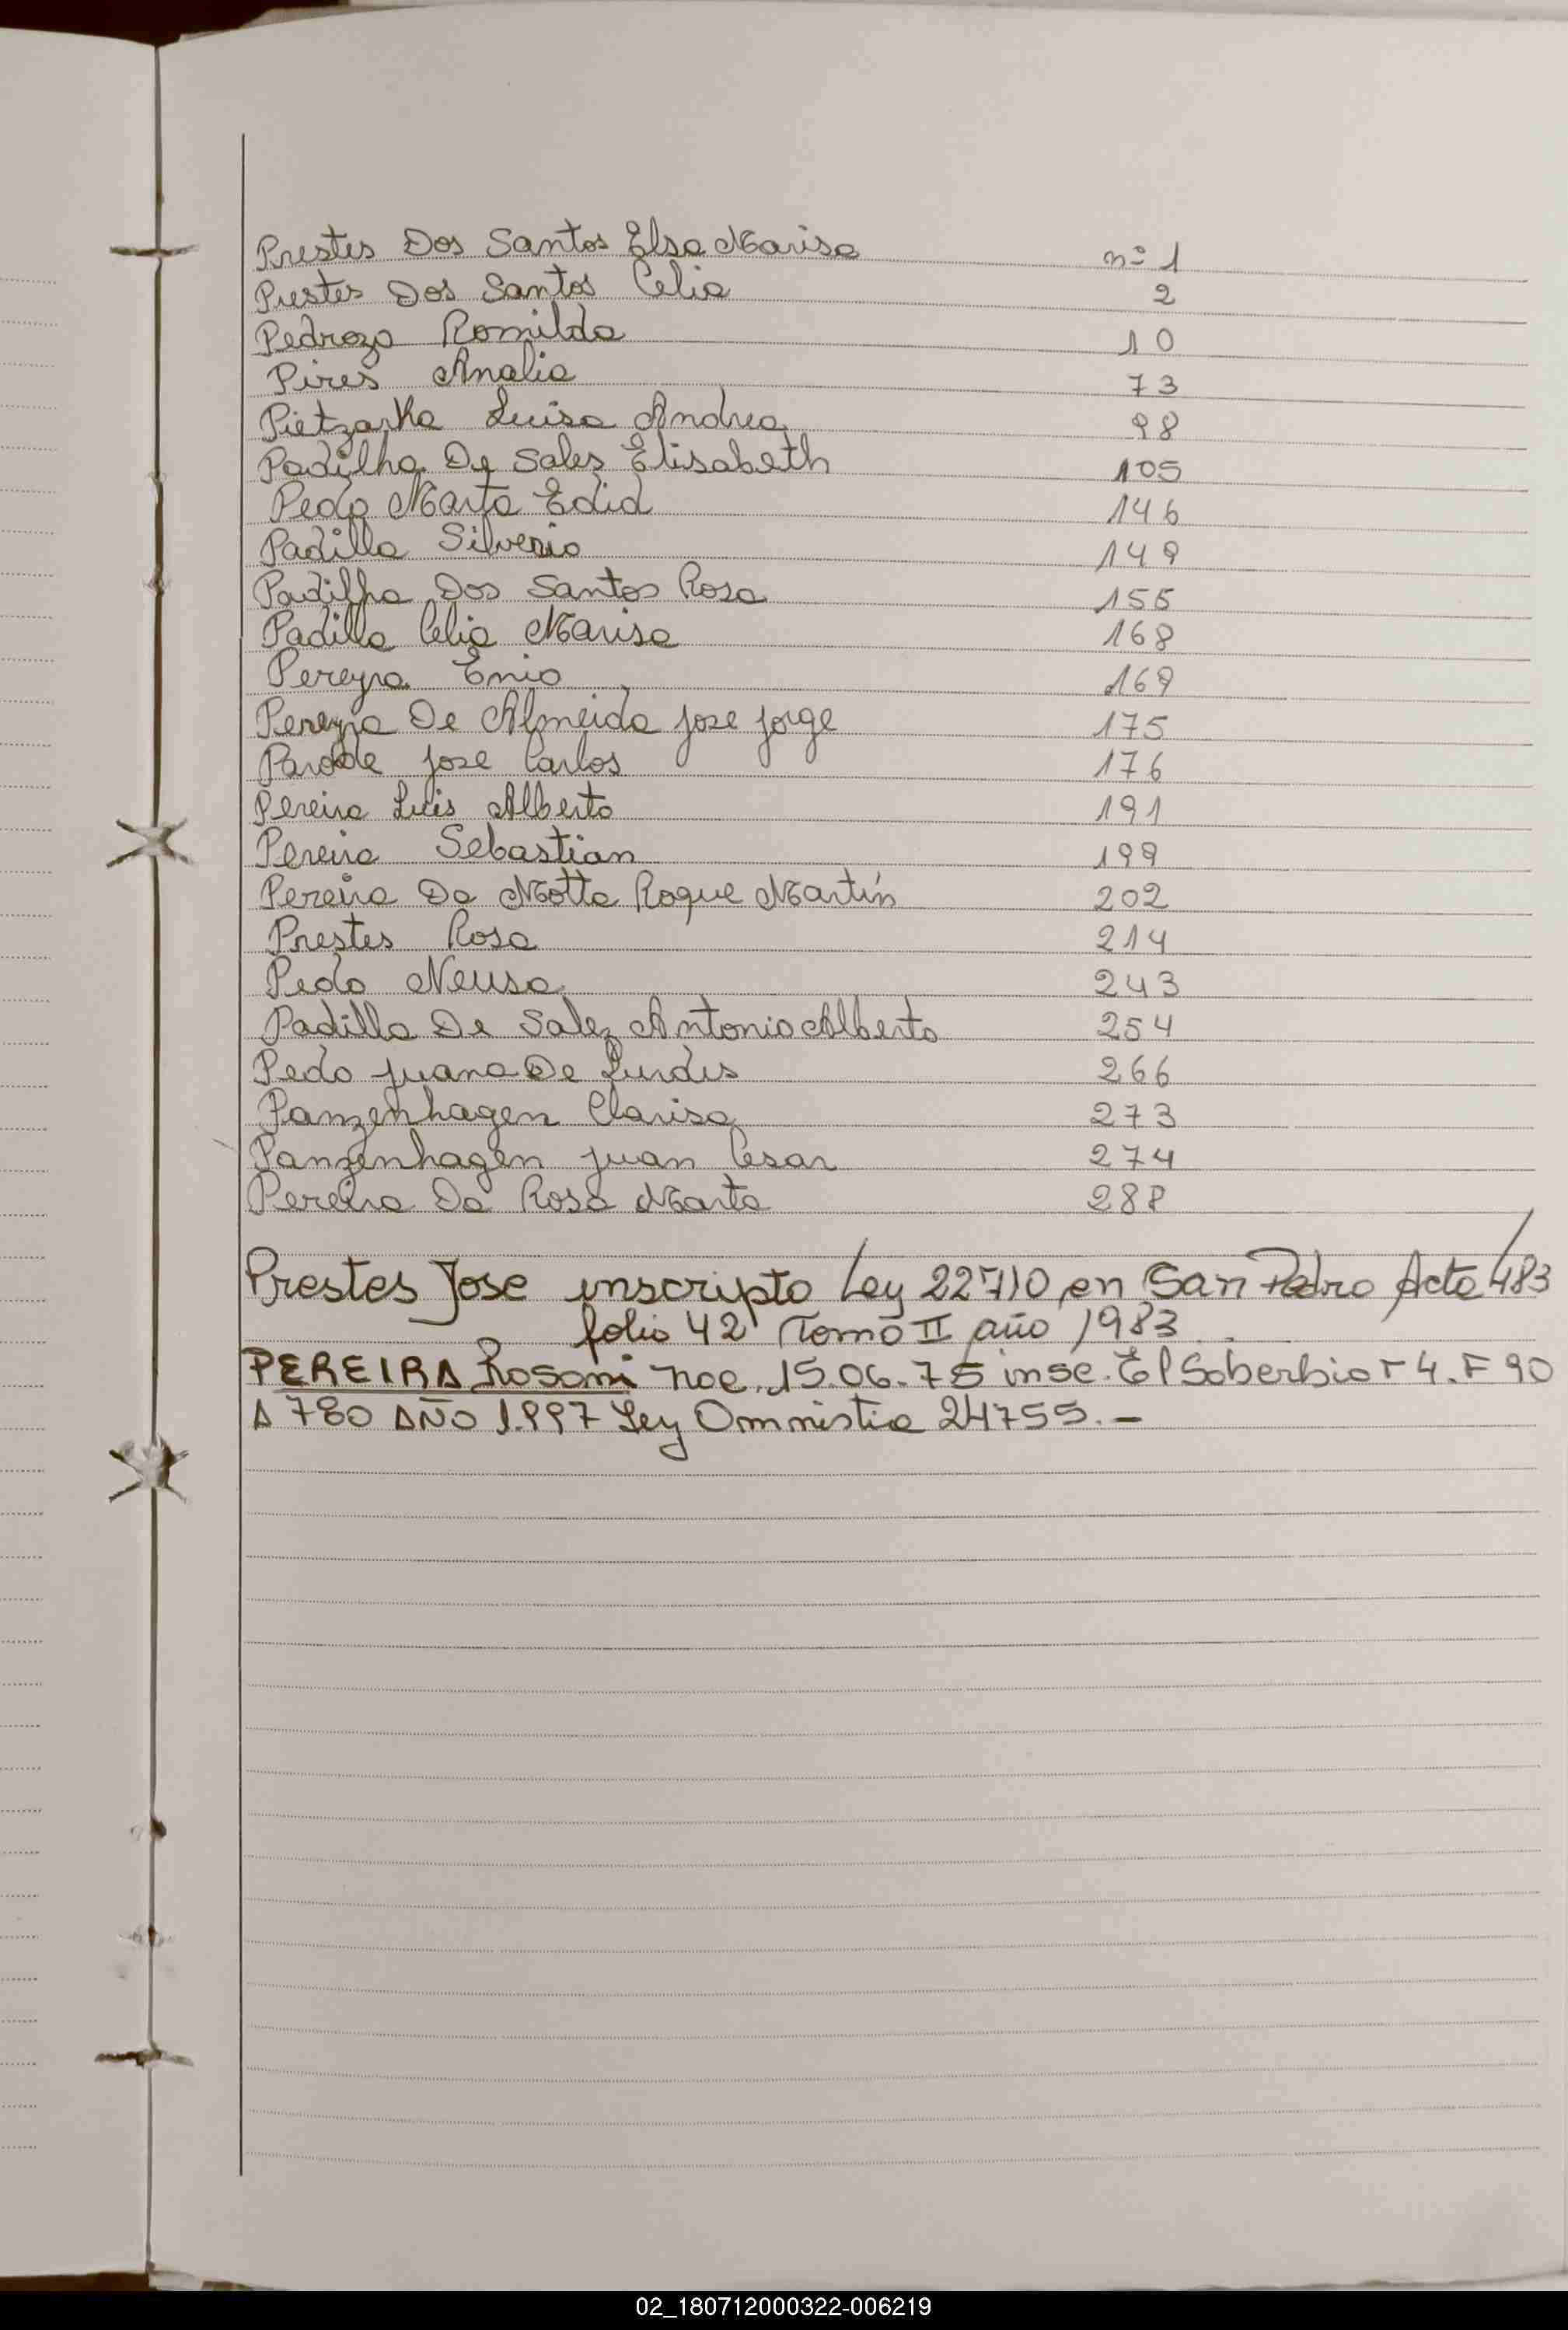 Prestes Dos Santos Elsa Marisa nº 1
Prestes Dos Santos Celia 2
Pedrozo Romilda 10
Pires Analia 73
Pietzarka Luisa Andrea 98
Padilha De Sales Elisabeth 105
Pedo Marta Edid 146
Padilla Silverio 149
Padilha Dos Santos Rosa 155
Padilla Celia Marisa 168
Pereyra Enio 169
Pereyra De Almeida Jose Jorge 175
Jose Carlos 176
Pereira Luis Alberto 191
Pereira Sebastian 199
Pereira Da Motta Roque Martín 202
Prestes Rosa 214
Pedo Neusa 243
Padilla De Salez Antonio Alberto 254
Pedo Juana De Lurdes 266
Panzenhagen Clarisa 273
Panzenhagen Juan Cesar 274
Pereira Da Rosa Marta 288
Prestes Jose inscripto Ley 22710 en San Pedro Acta 483
folio 42 Tomo II año 1983
PEREIRA Rosani Nac. 15.06.75 insc. El Soberbio T 4. F 90
A 780 AÑO 1.997 Ley Omnistia 24755.-
02_180712000322-006219